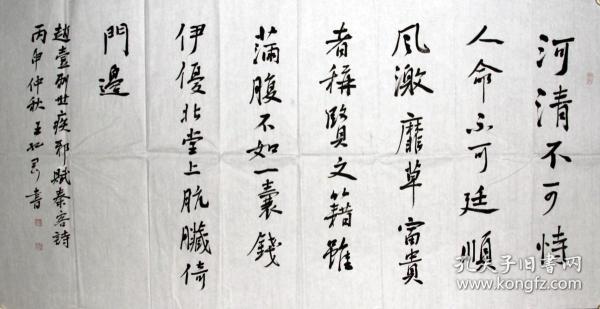 河清不可恃
人命不可延順
風激靡草富貴
者稱賢文籍雖
滿腹不如一囊錢
伊優北堂上肮臟倚
門邊
趙壹刺世疾邪賦秦客詩
丙申仲秋王書
孔夫子旧书网